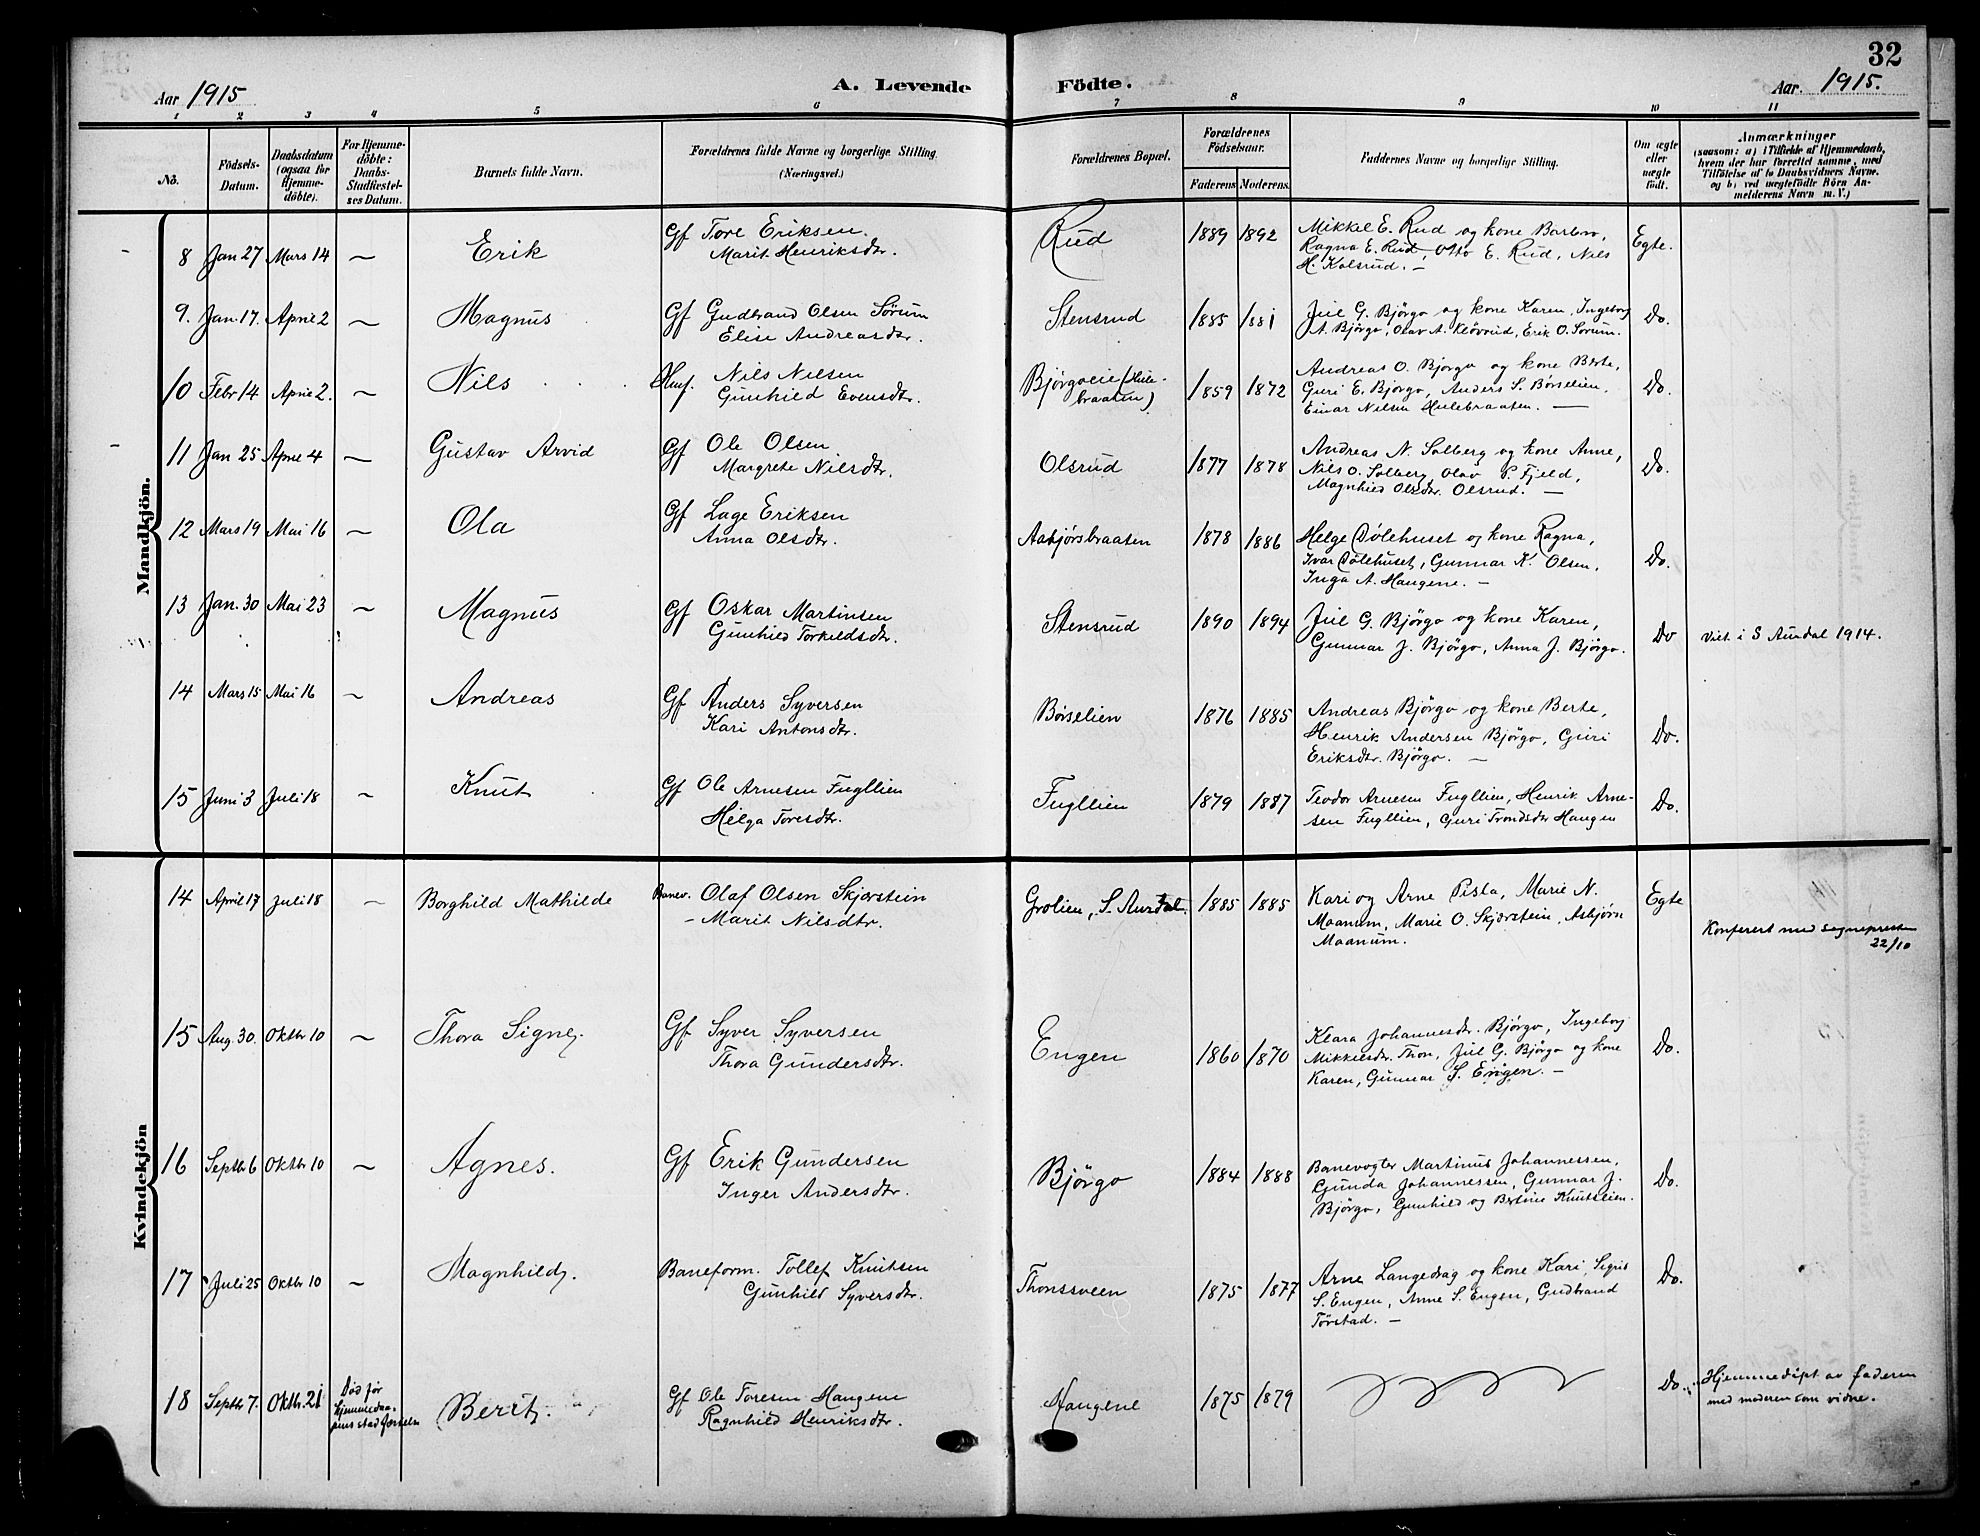 32
Aar 1915
A. Levende
Födte.
Aar. 1915.
1 2 3 4 5 6 7 8 9 10 11
No.
Födsels-
Datum.
Daabsdatum
(ogsaa for
Hjemme-
döbte).
For Hjemme-
döbte:
Daabs-
Stadfæstel-
ses Datum.
Barnets fulde Navn.
Forældrenes fulde Navne og borgerlige Stilling.
(Næringsvei.)
Forældrenes Bopæl.
Forældrenes
Födselsaar.
Faderens. Moderens.
Faddernes Navne og borgerlige Stilling.
Om ægte
eller
uægte
födt.
Anmærkninger
(saasom: a) i Tilfælde af Hjemmedaab,
hvem der har forrettet samme, med
Tilföielse af to Daabsvidners Navne.
og b) ved uægtefödte Börn An-
melderens Navn m. V.)
Mandkjön.
8 Jan 27 Mars 14 – Erik Gf Tore Eriksen.
Marit Henriksdtr.
Rud 1889 1892 Mikkel E. Rud og kone Barbro,
Ragna E. Rud, Otto E. Rud, Nils
H. Kolsrud. –
Egte.
9. Jan. 17. April 2 – Magnus Gf Gudbrand Olsen Sørum
Elise Andreasdtr.
Stensrud 1885 1881 Juel G. Bjørgo og kone Karen, Ingeborg
A. Bjørgo, Olav A. Kløvrud, Erik O. Sørum.
Do.
10 Febr 14 April 2. – Nils Husf. Nils Nilsen
Gunhild Evensdtr.
Bjørgoeie (Hule-
braaten)
1859 1872 Andreas O. Bjørgo og kone Berte,
Guri E. Bjørgo, Anders S. Børselien,
Einar Nilsen Hulebraaten. –
Do.
11 Jan 25 April 4 – Gustav Arvid Gf Ole Olsen
Margrete Nilsdtr.
Olsrud 1877 1878 Andreas N. Solberg og kone Anne,
Nils O. Solberg, Olav P. Fjeld,
Magnhild Olsdtr. Olsrud. –
Do.
12 Mars 19 Mai 16 – Ola Gf Lage Eriksen
Anna Olsdtr.
Asbjørsbraaten 1878 1886 Helge Dølehuset og kone Ragna,
Ivar Dølehuset, Gunnar K. Olsen,
Inga A. Haugene. –
Do.
13 Jan. 30 Mai 23 – Magnus Gf Oskar Martinsen
Gunhild Torkildsdtr.
Stensrud 1890 1894 Juel G. Bjørgo og kone Karen,
Gunnar J. Bjørgo, Anna J. Bjørgo.
Do Viet i S Aurdal 1914.
14 Mars 15 Mai 16 – Andreas Gf Anders Syversen
Kari Antonsdtr.
Børselien 1876 1885 Andreas Bjørgo og kone Berte,
Henrik Andersen Bjørgo, Guri
Eriksdtr. Bjørgo. –
Do.
15 Juni 3 Juli 18 – Knut Gf Ole Arnesen Fugllien
Helga Toresdtr.
Fugllien 1879 1887 Teodor Arnesen Fugllien, Henrik Arne-
sen Fugllien, Guri Trondsdtr Haugen
Do.
Kvindekjön
14 April 17 Juli 18 – Borghild Mathilde Banev. Olaf Olsen Skjerstein
– Marit Nilsdtr.
Grolien, S. Aurdal. 1885 1885 Kari og Arne Pista, Marie N.
Maanum, Marie O. Skjerstein, Asbjørn
Maanum.
Egte
Konferert med sognepresten
22/10
15 Aug. 30. Oktbr 10 – Thora Signe. Gf Syver Syversen
Thora Gundersdtr.
Engen 1860 1870 Klara Johannesdtr. Bjørgo, Ingeborg
Mikkelsdtr. Thon, Juel G. Bjørgo og kone
Karen, Gunnar S. Engen. –
Do.
16 Septbr 6 Oktbr 10 – Agnes. Gf Erik Gundersen
Inger Andersdtr.
Bjørgo 1884 1888 Banevogter Martinus Johannessen,
Gunda Johannessen, Gunnar J.
Bjørgo, Gunhild og Bertine Knutslien.
Do.
17 Juli 25 Oktbr 10 – Magnhild. Baneform. Tollef Knutsen
Gunhild Syversdtr.
Thonssveen 1875 1877 Arne Langedrag og kone Kari, Sigrid
S. Engen, Anne S. Engen, Gudbrand
Tørstad. –
Do.
18 Septbr 7. Oktbr. 21 Død før
hjemmedaa-
pens stadfestelse
Berit. Gf Ole Toresen Haugene
Ragnhild Henriksdtr.
Haugene 1875 1879
Do. Hjemmedøpt av faderen
med moderen som vidne.